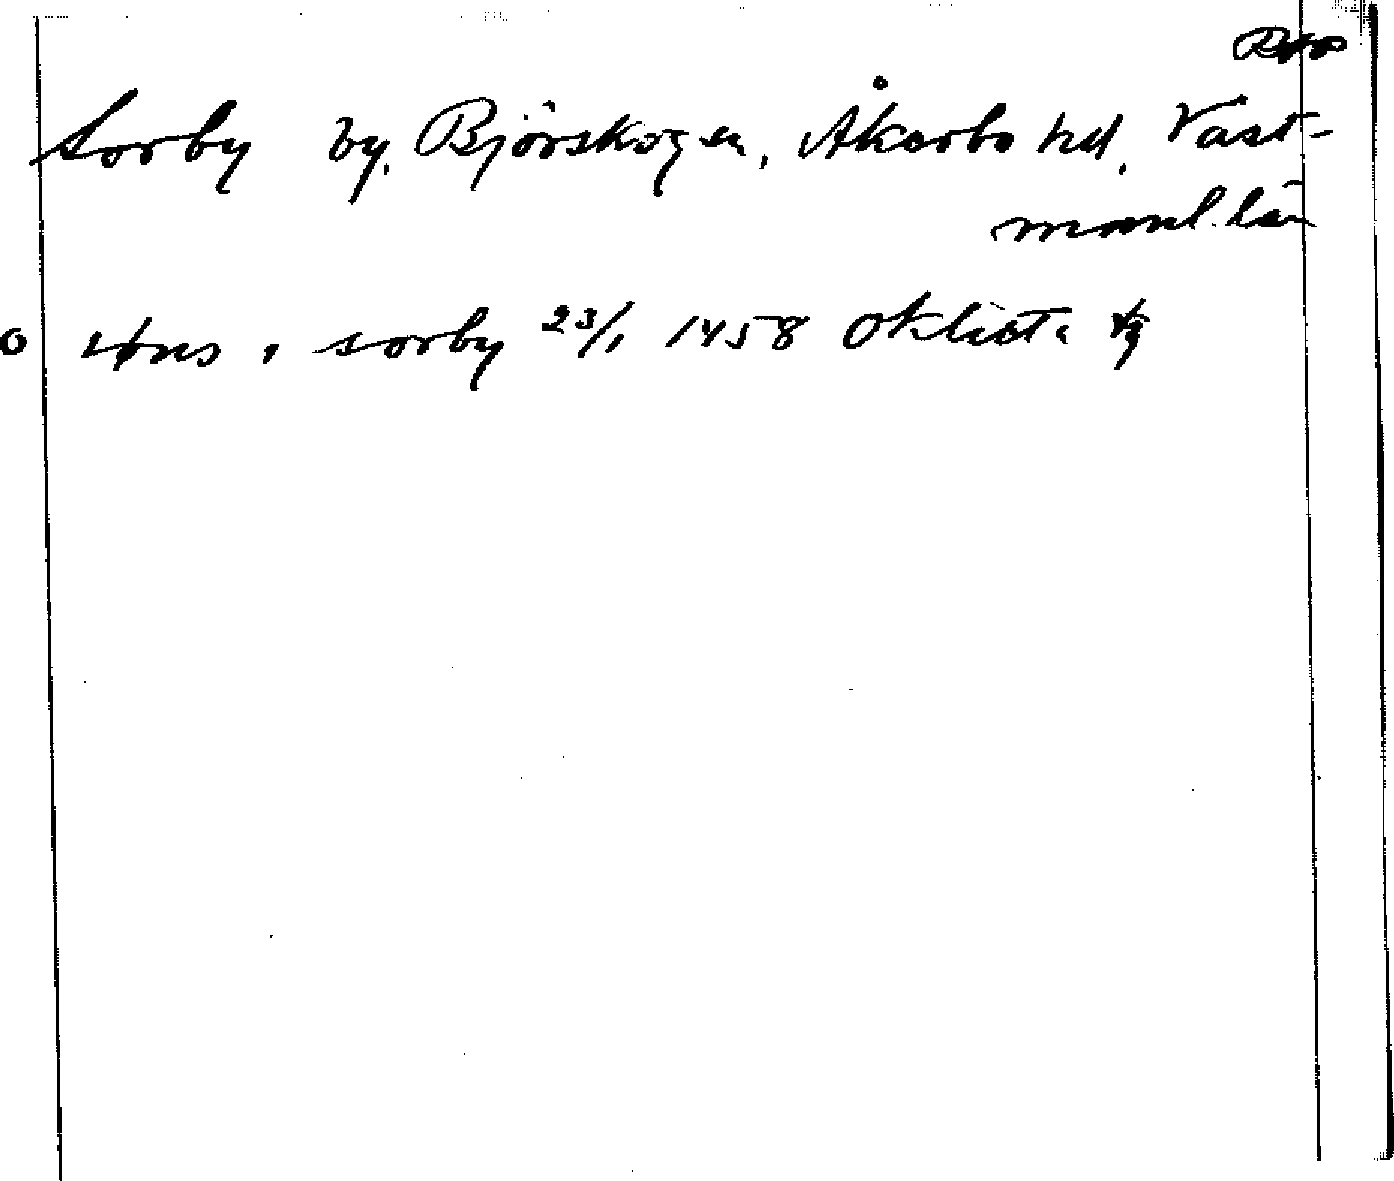 Sorby by, Björskogs sn, Åkerbo hd, Väst-
manl. län
o iøns i sorby 23/1 1458 Oklista